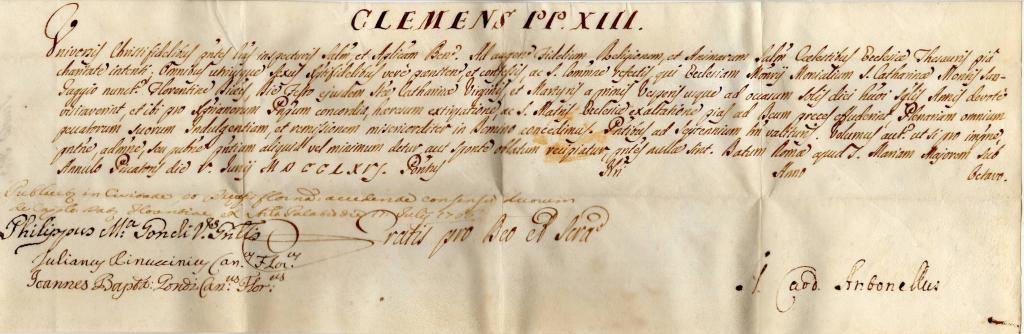 CLEMENS PP. XIII.
Universis Christifidelibus pntes Lras inspecturis Salm et Aplicam Bene. Ad augen fidelium Religionem et Animarum Salm Coelestibus Ecclesiae Thesauris pia
charitate intenti, Omnibus utriusque Sexus Xpifidelibus vere peniten et confessis, ac S. Commne refectis, qui Ecclesiam Monrij Monialium S. Catharinae Montis San-
Gaggio nuncp. Florentinae Dioecis Die Festo ejusdem Stae Catharinae Virginis et Martyris a primis Vesperis usque ad occasum Solis diei hujusmodi Sglis Annis devote
visitaverint, et ibi pro Xpianorum Prpum concordia, haeresum extirpatione, ac S. Matris Ecclesiae exaltatione pias ad Deum preces effuderint Plenariam omnium
peccatorum Suorum Indulgentiam, et remissionem misericorditer in Domino concedimus. Pntibus ad Septennium tm valituris. Volumus aut. ut si pro impne
pntne, admne seu publne pntium aliquid vel minimum detur aut sponte oblatum recipiatur pntes nullae sint. Datum Romae apud S. Mariam Majorem sub
Annulo Piscatoris die V. Junij MDCCLXVI. Pontus Nri Anno Octavo.
Publicetur in Civitate, et Dioecesi florna. accedente consensu duorum
de Caplo Florentinae, Palatio die Julij
Philippus Ma. Gondi Vs. Gnlis
Gratis pro Deo et Scra
Julianus Rinuccinius Can.us Flor.us
Joannes Bapta. Gondi Can.us Flor.us
Card. Antonellus